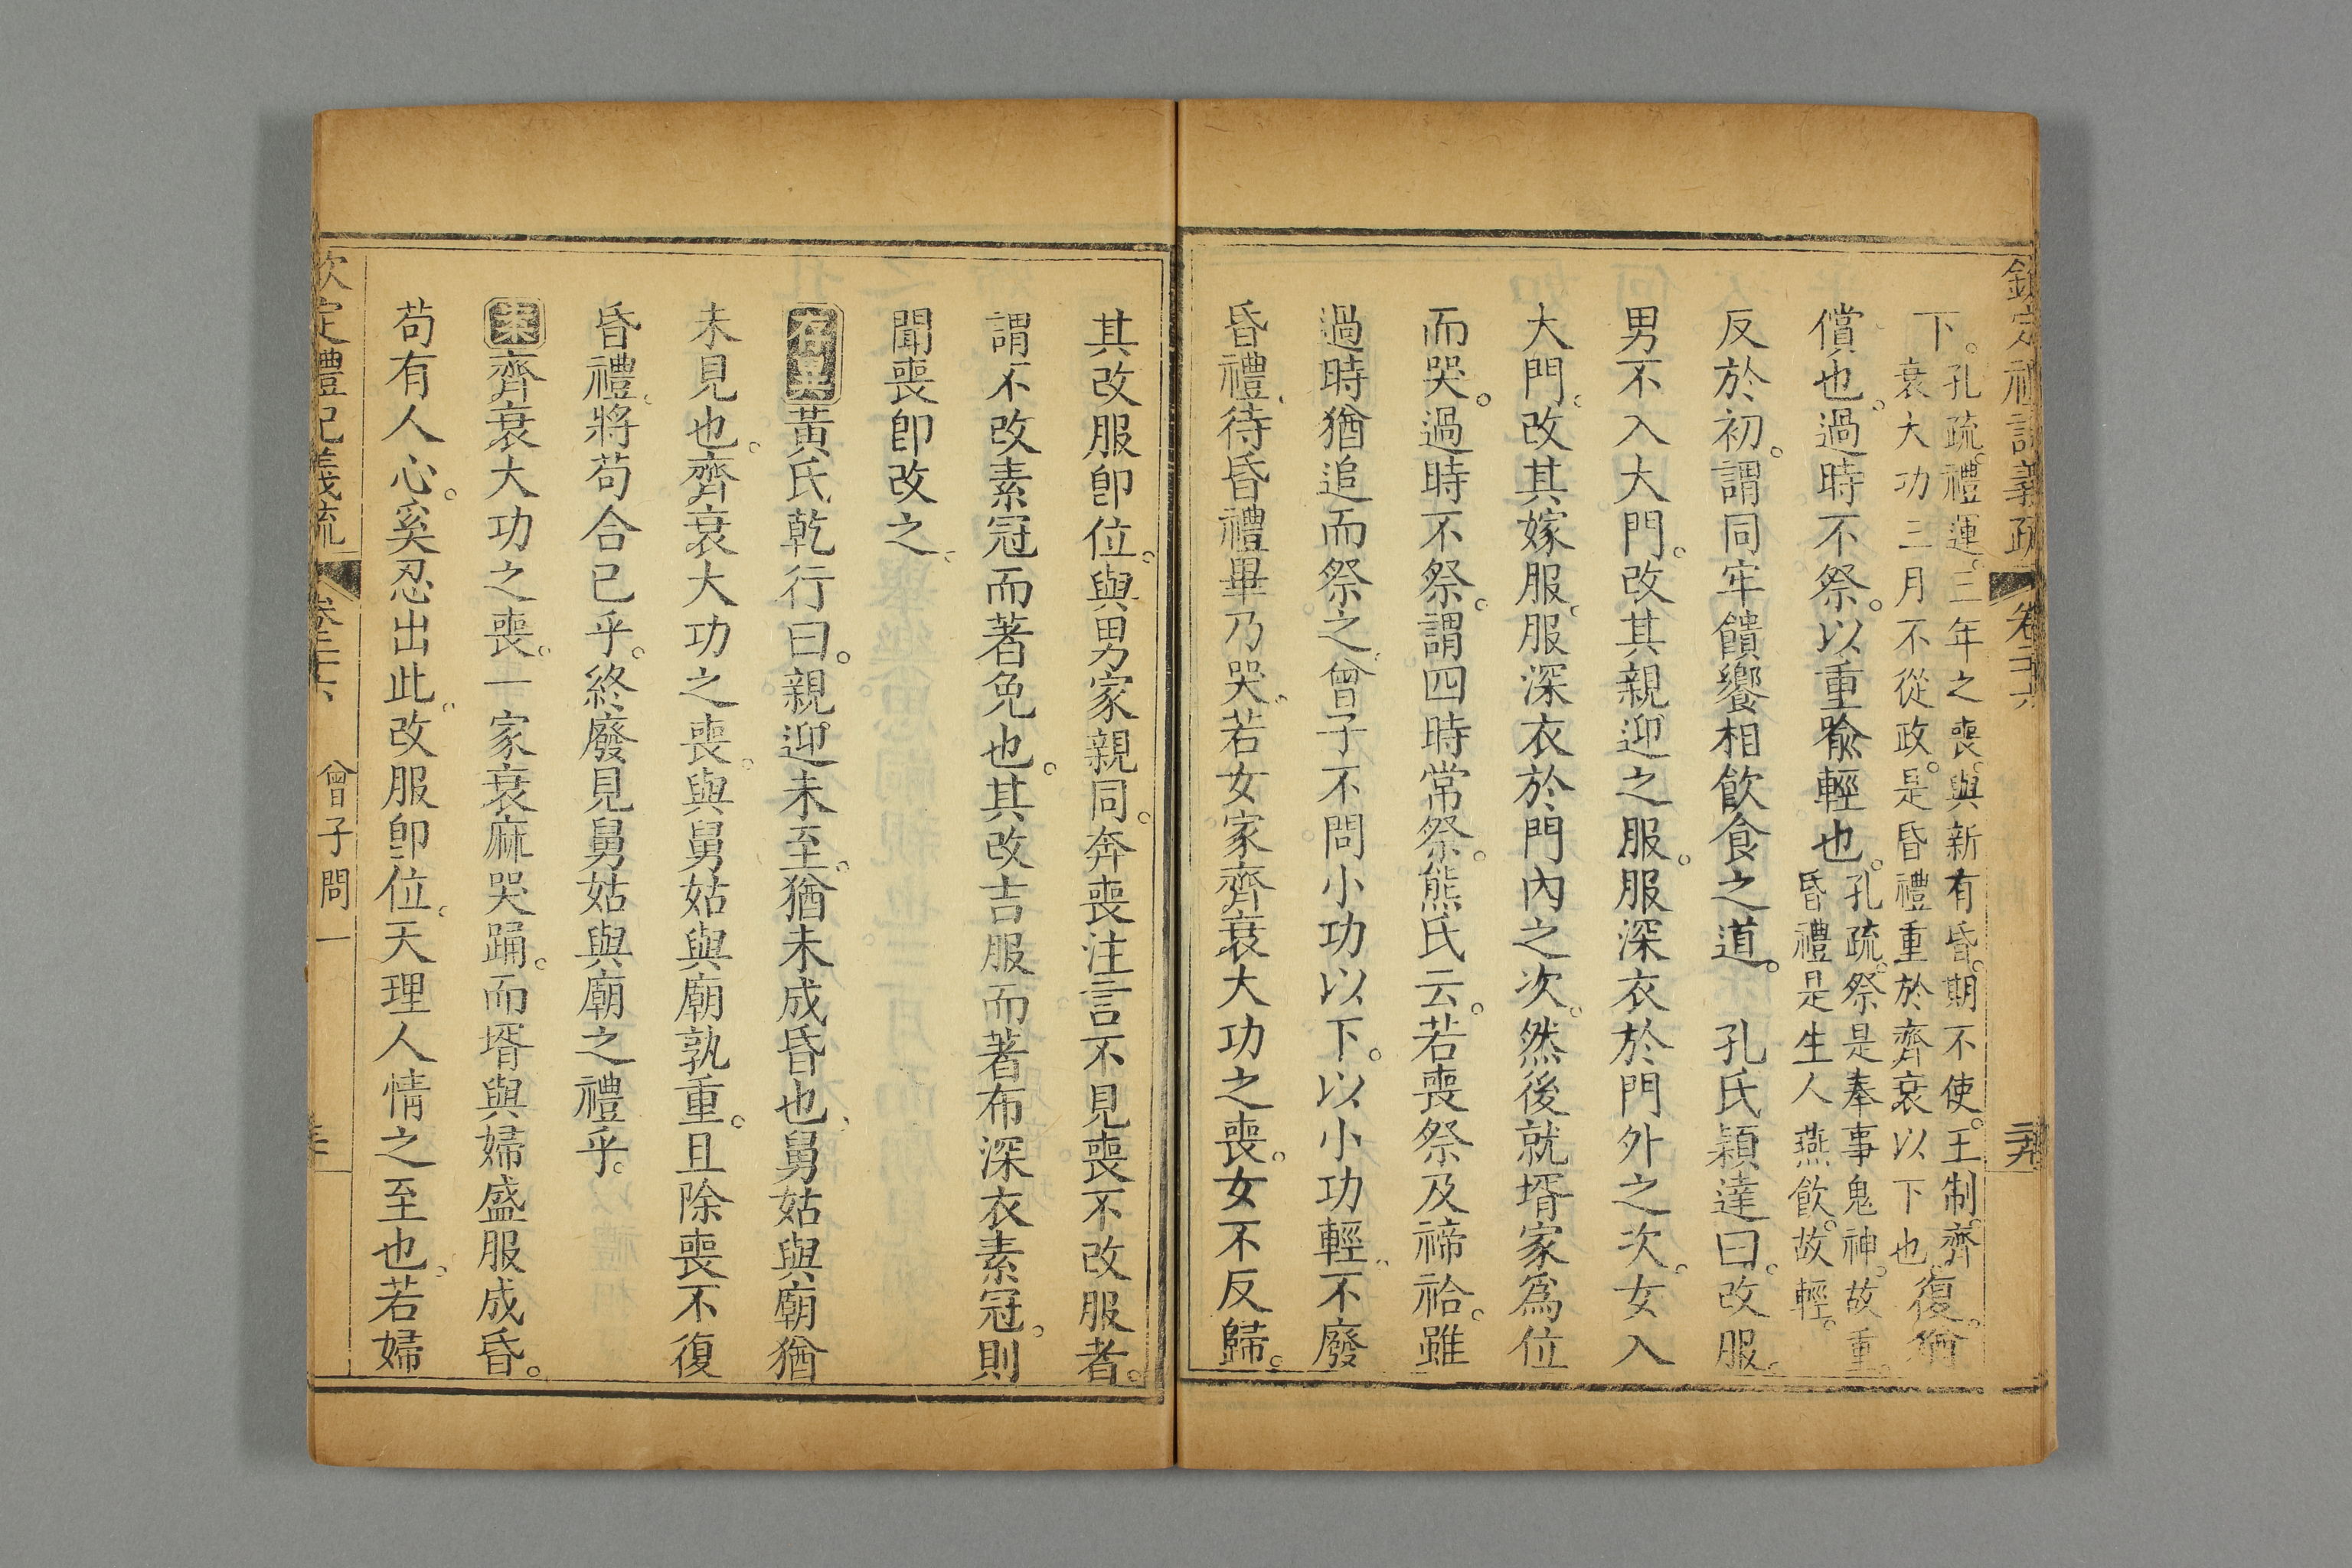 欽定禮記義疏 卷二十六
下。孔疏。禮運。三年之喪。與新有昏。期不使。王制。齊
衰大功三月不從政。是昏禮重於齊衰以下也。復。猶
償也。過時不祭。以重喩輕也。孔疏。祭是奉事鬼神。故重。
昏禮是生人燕飲。故輕。
反於初。謂同牢饋饗相飲食之道。 孔氏穎達曰。改服。
男不入大門。改其親迎之服。服深衣於門外之次。女入
大門。改其嫁服。服深衣於門內之次。然後就壻家爲位
而哭。過時不祭。謂四時常祭。熊氏云。若喪祭及禘祫。雖
過時猶追而祭之。曾子不問小功以下。以小功輕。不廢
昏禮。待昏禮畢乃哭。若女家齊衰大功之喪。女不反歸。
其改服卽位。與男家親同。奔喪注言不見喪不改服者。
謂不改素冠而著免也。其改吉服而著布深衣素冠。則
聞喪卽改之。
存異黃氏乾行曰。親迎未至。猶未成昏也。舅姑與廟猶
未見也。齊衰大功之喪。與舅姑與廟孰重。且除喪不復
昏禮。將苟合已乎。終廢見舅姑與廟之禮乎。
案齊衰大功之喪。一家衰麻哭踊。而壻與婦盛服成昏。
苟有人心。奚忍出此。改服卽位。天理人情之至也。若婦
欽定禮記義疏 卷二十六 曾子問一